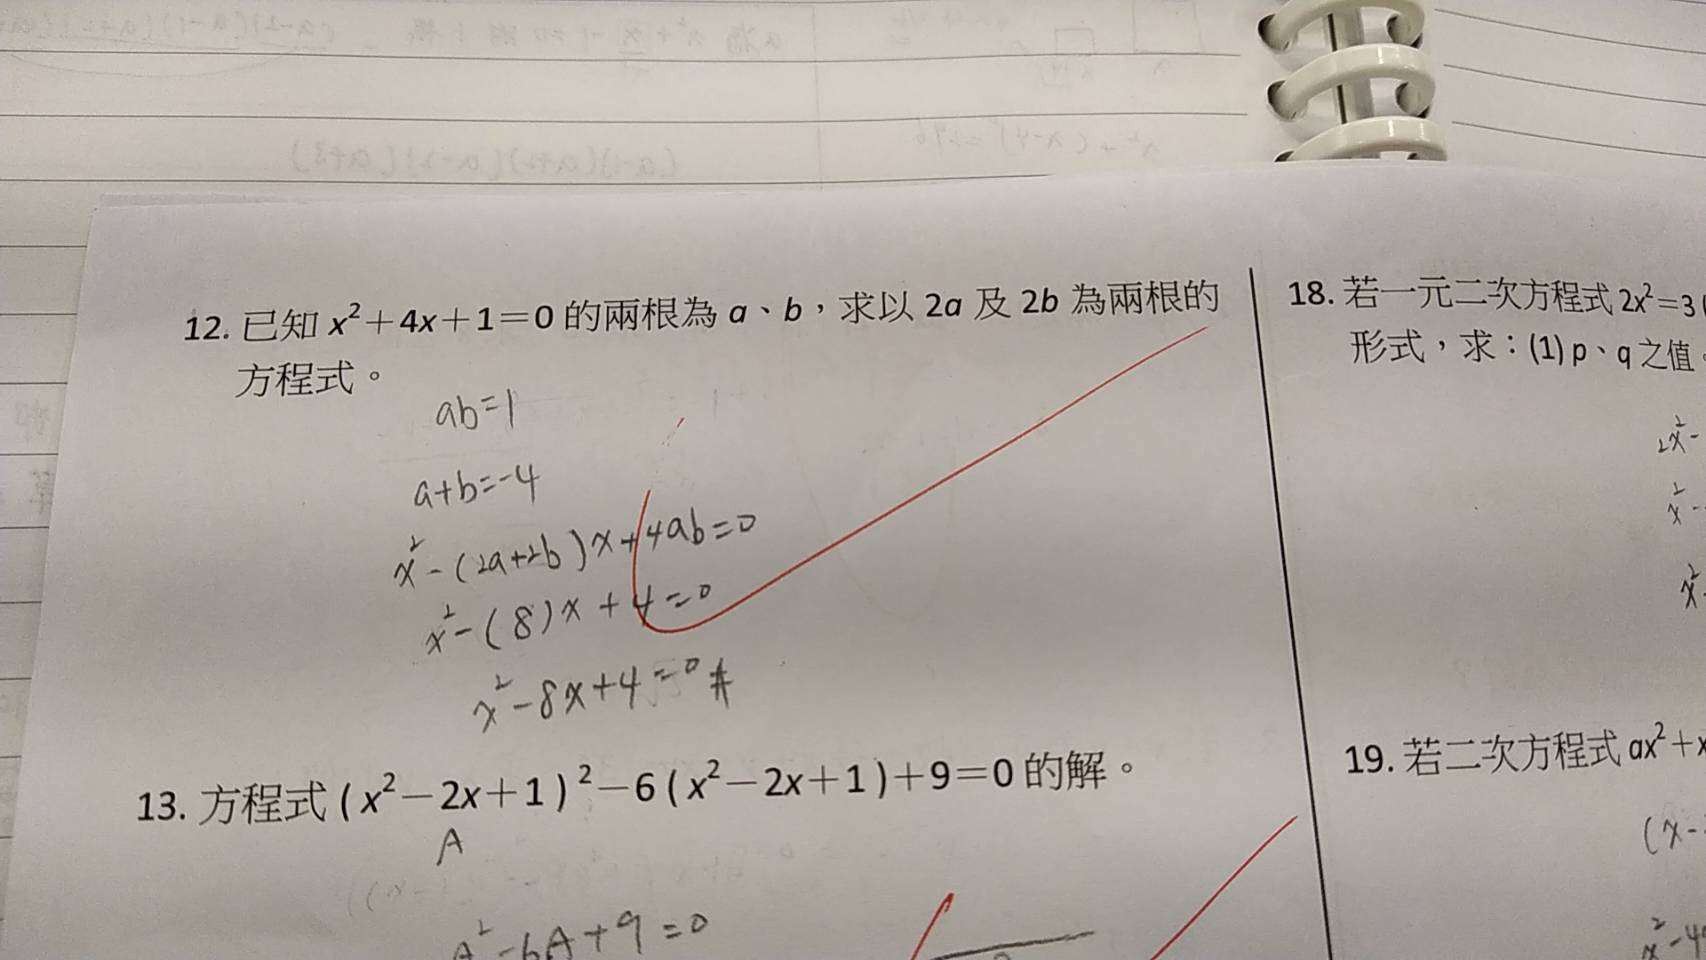 12. 已知 x²+4x+1=0 的兩根為 a、b，求以 2a 及 2b 為兩根的
方程式。
ab=1
a+b=-4
x²-(2a+2b)x+4ab=0
x²-(8)x+4=0
x²-8x+4=0 #
13. 方程式 (x²-2x+1)²-6(x²-2x+1)+9=0 的解。
A
A²-6A+9=0
18. 若一元二次方程式 2x²=3
形式，求：(1) p、q 之值。
2x²-
x²-
x²-
19. 若二次方程式 ax²+x
(x-